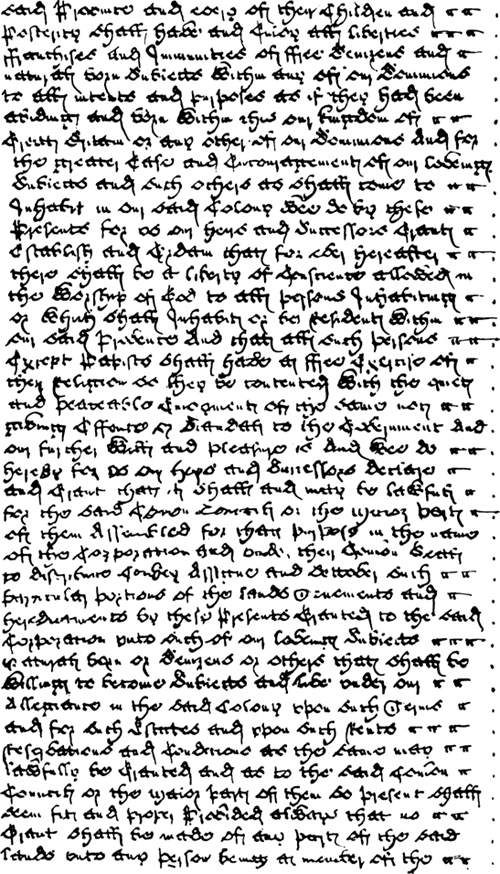 said Province and every of their Children and
Posterity shall have and Enjoy all liberties
ffranchises and Immunities of ffree Denizens and
naturall born Subjects Within any of our Dominions
to all intents and purposes as if they had been
abiding and born Within this our Kingdom of
Great Britain or any other of our Dominions And for
the greater Ease and Encouragement of our loveing
Subjects and Such others as shall come to
Inhabit in our said Colony Wee do by these
Presents for us our heirs and Successors Grant
Establish and Ordain that for ever hereafter
there shall be a liberty of Conscience allowed in
the Worship of God to all persons Inhabiting
or Which shall Inhabit or be Resident Within
our said Province And that all Such persons
Except Papists shall have a ffree Exercise of
their Religion so they be contented With the quiet
and peaceable Enjoyment of the same not
giveing Offence or Scandall to the Government And
our further Will and pleasure is And Wee do
hereby for us our heirs and Successors declare
and Grant that it shall and may be lawfull
for the said Comon Council or the major part
of them Assembled for that purpose in the name
of the Corporation and under their Comon Seall
to distribute Convey Assigne and Settover Such
particular portions of the lands Tenements and
hereditaments by these Presents Granted to the said
Corporation unto Such of our loveing Subjects
naturall born or Denizens or others that shall be
Willing to become Subjects and live under our
Allegiance in the said Colony upon Such Terms
and for Such Estates and upon Such Rents
Reservations and Conditions as the same may
lawfully be Granted and as to the said Comon
Council or the major part of them so present shall
seem fitt and proper Provided always that no
Grant shall be made of any part of the said
lands unto any person being a member of the